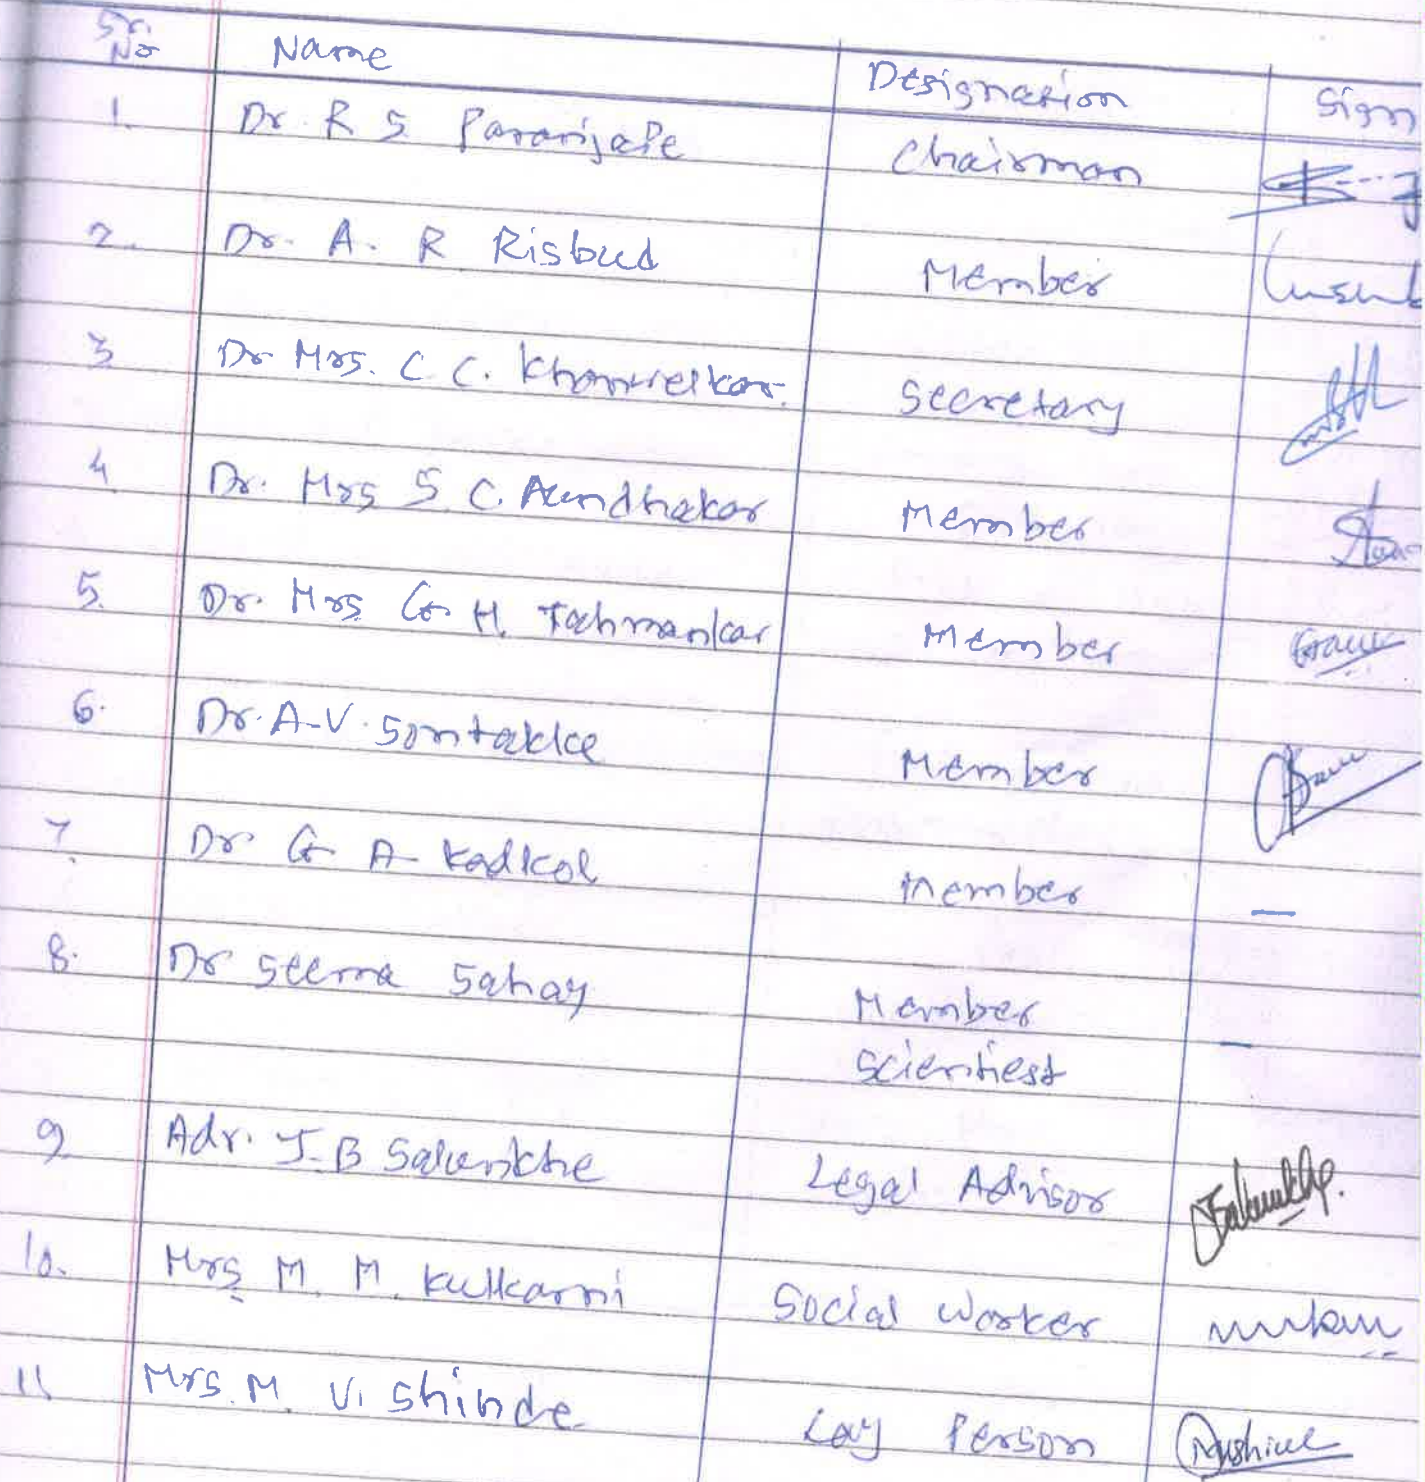 Sr. No Name Designation Sign
1. Dr. R S Paranjape Chairman
2. Dr. A. R Risbud Member
3 Dr Mrs. C C. Khanvelkar. Secretary
4 Dr. Mrs S C. Aundhakar Member
5. Dr. Mrs G H. Tahmankar Member
6. Dr. A-V. Sontakke Member
7. Dr. G A- Kadkol Member —
8. Dr Seema Sahay Member —
Scientiest
9 Adv. J-B Salunkhe Legal Advisor Jsalunkhe.
10. Mrs M. M. Kulkarni Social Worker
11 Mrs. M. V. Shinde Lay Person